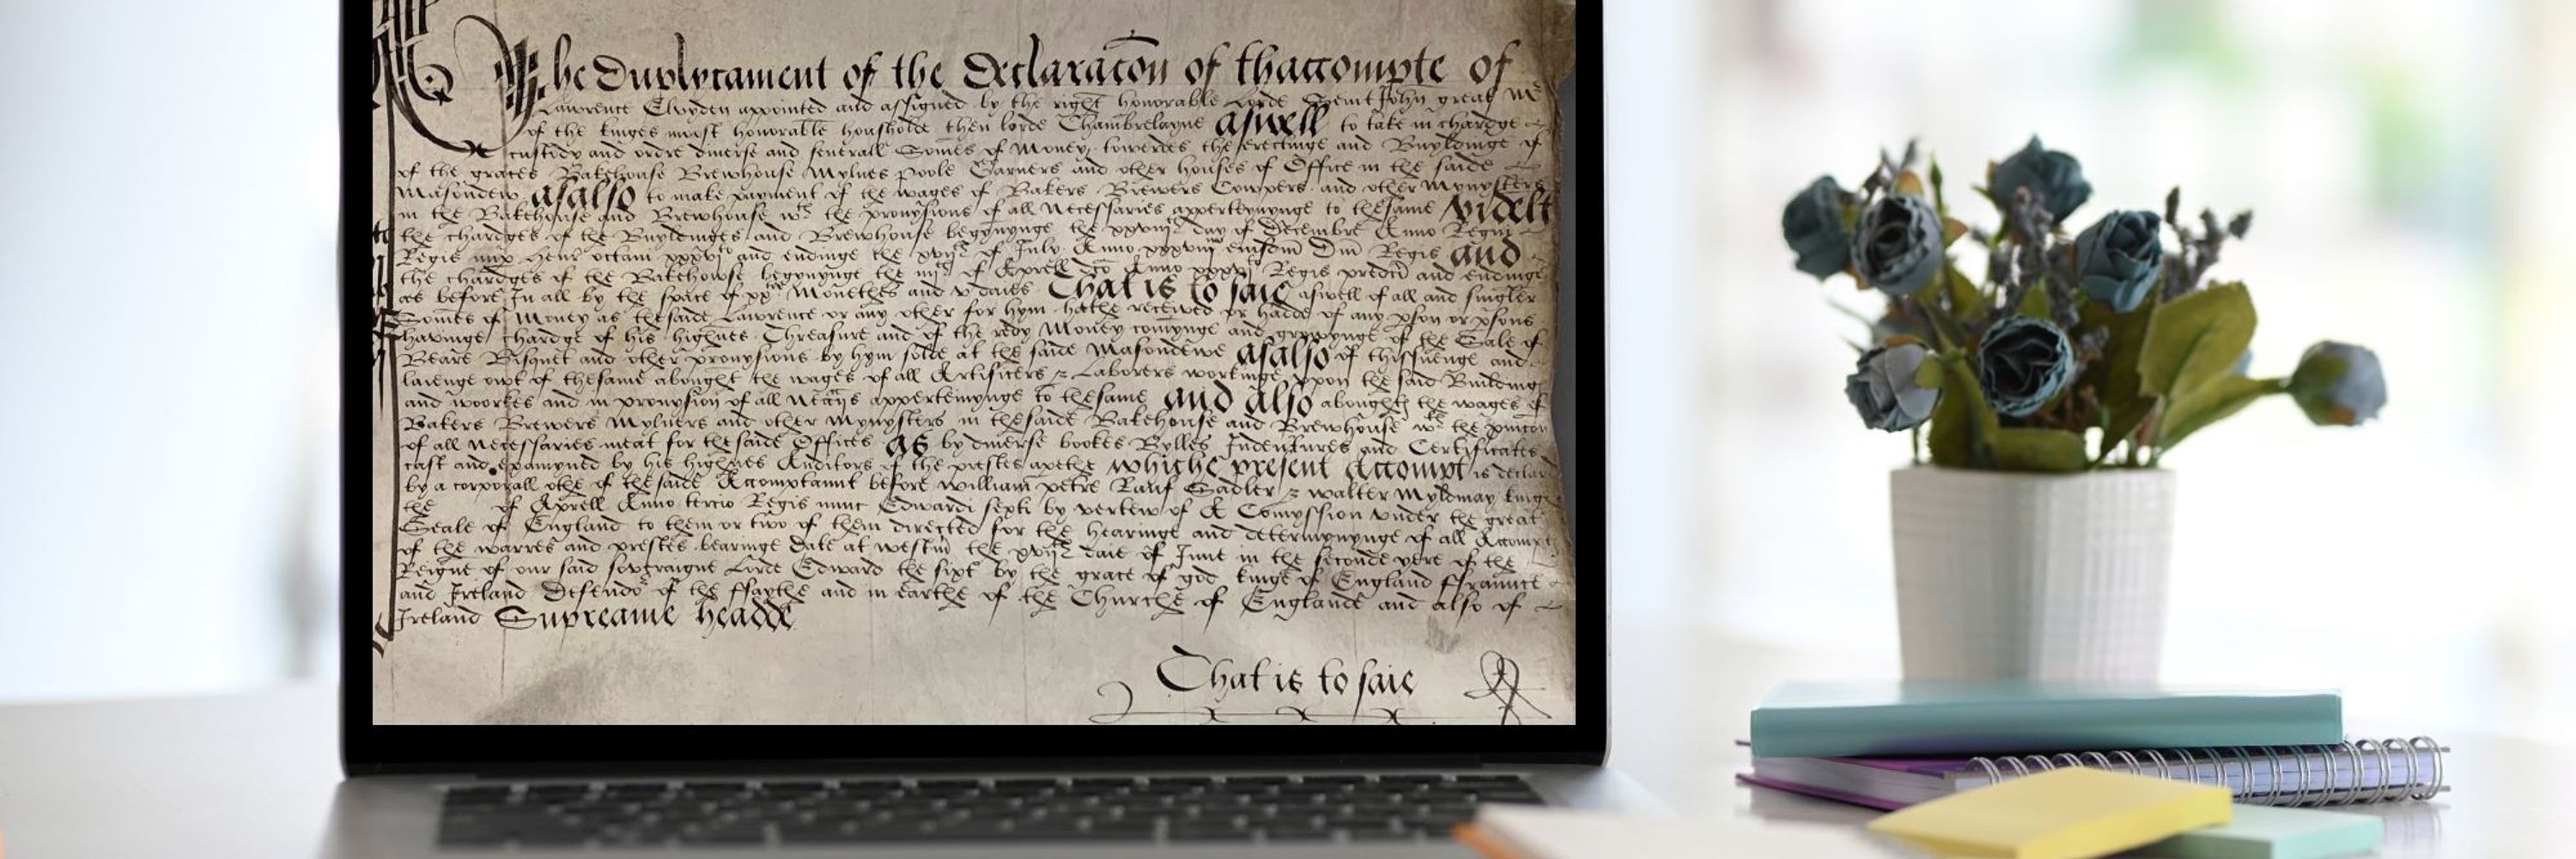 The Duplycament of the Declaracõn of thaccompte of
Lawrence appointed and assigned by the right honorable Lorde Seint John great
of the kinges moost honorable housholde then lorde Chambrelayne aswell to take in chardge
custody and ordre diuerse and seuerall Somes of Money towerdes the erectinge and Buyldinge of
of the graces Bakehouse Brewhouse Mylnes Poole Garners and other houses of Office in the saide
Masondew asalso to make payment of the wages of Bakers Brewers Cowpers and other Mynysters
in the Bakehouse and Brewhouse wt the provysions of all Necessaries apperteynynge to thesame videlt
the chardges of the Buyldinges and Brewhouse begynynge the day of Decembre Anno Regni
Regis octaui and endinge the of July Anno Regis and
the chardges of the Bakehouse begynynge the of Aprell Anno Regis and endinge
as before In all by the space of Monethes and v daies That is to saie aswell of all and singler
Somes of Money as thesaide Lawrence or any other for hym hathe received or hadde of any pson or psons
havinge chardge of his highnes Threasure and of the redy Money comynge and growynge of the Sale of
Beare Bisquet and other provysions by hym solde at the saide Masondewe asalso of thissuenge and
laienge owt of thesame abought the wages of all Artificers Laborers workinge vpon the said Building
and woorkes and in provysion of all apperteinynge to thesame and also the wages of
Bakers Brewers Mylners and other Mynysters in thesaide Bakehouse and Brewhouse wt the
of all Necessaries meat for thesaide Offices As by diuerse bookes Bylles Indentures and Certificates
cast and examyned by his highnes Auditors of the prestes whiche present Accompt is
by a corporall othe of thesaide Accomptannt before William Petre Rauf Sadler Walter Myldmay
the of Aprell Anno tercio Regis nunc Edwardi sexti by vertew of A Comyssion vnder the great
Seale of England to them or two of them directed for the hearinge and determynynge of all
of the warres and prestes bearinge date at the daie of June in the seconde yere of the
Reigne of our said Lorde Edward the sixt by the grace of god kinge of England ffraunce
and Ireland of the ffaythe and in earthe of the Churche of Englande and also of
Ireland Supreame headde
That is to saie